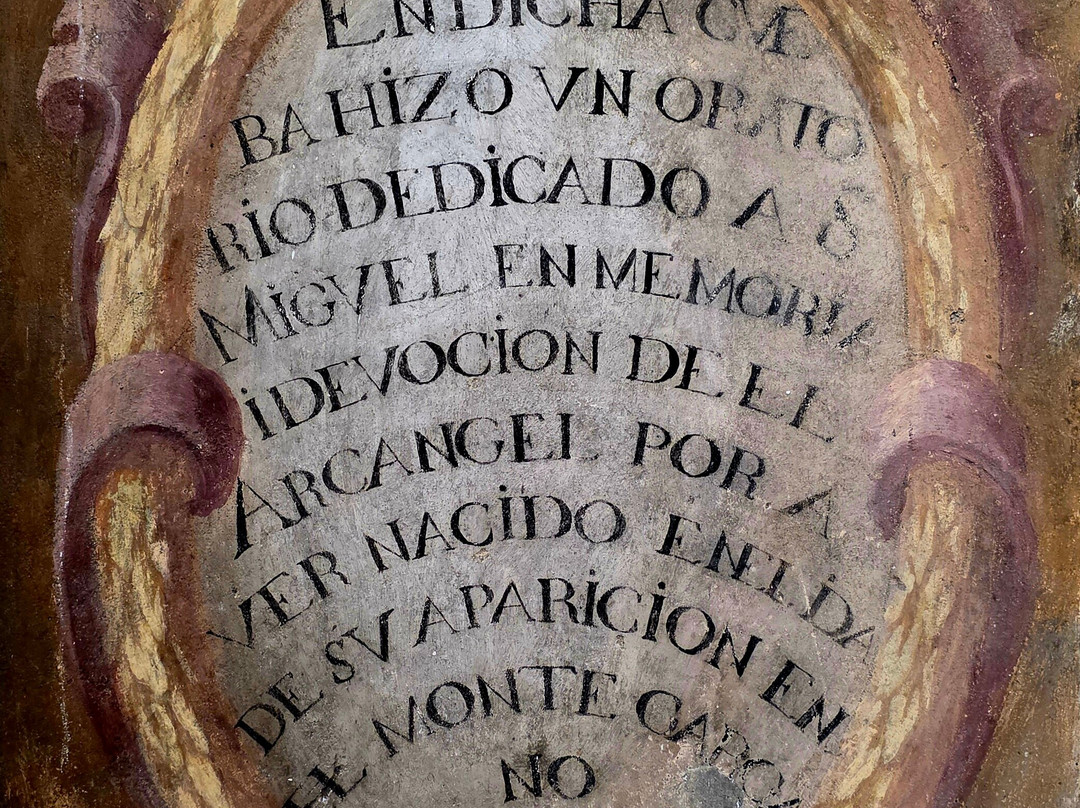 EN DICHA CVE
BA HiZO VN ORATO
RiO DEDiCADO A S
MiGVEL EN MEMORiA
i DEVOCiON DE EL
ARCANGEL POR A
VER NACiDO EN EL DiA
DE SV APARiCiON EN
EL MONTE GARGA
NO